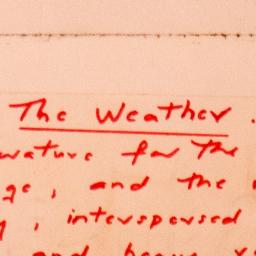 The Weather.
for the
, and the
, interspersed
and heavy